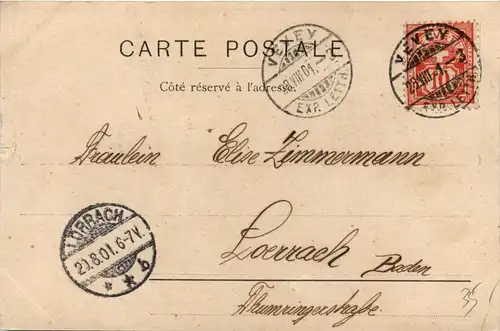 CARTE POSTALE
Côté réservé à l'adresse.
VEVEY
28.VIII.01.
EXP. LETTR.
VEVEY
28.VIII.01.-3
EXP. LETTR.
Fräulein Elise Zimmermann
Loerrach Baden
Thumringerstraße.
LÖRRACH
29.8.01.6-7V.
* * b
35